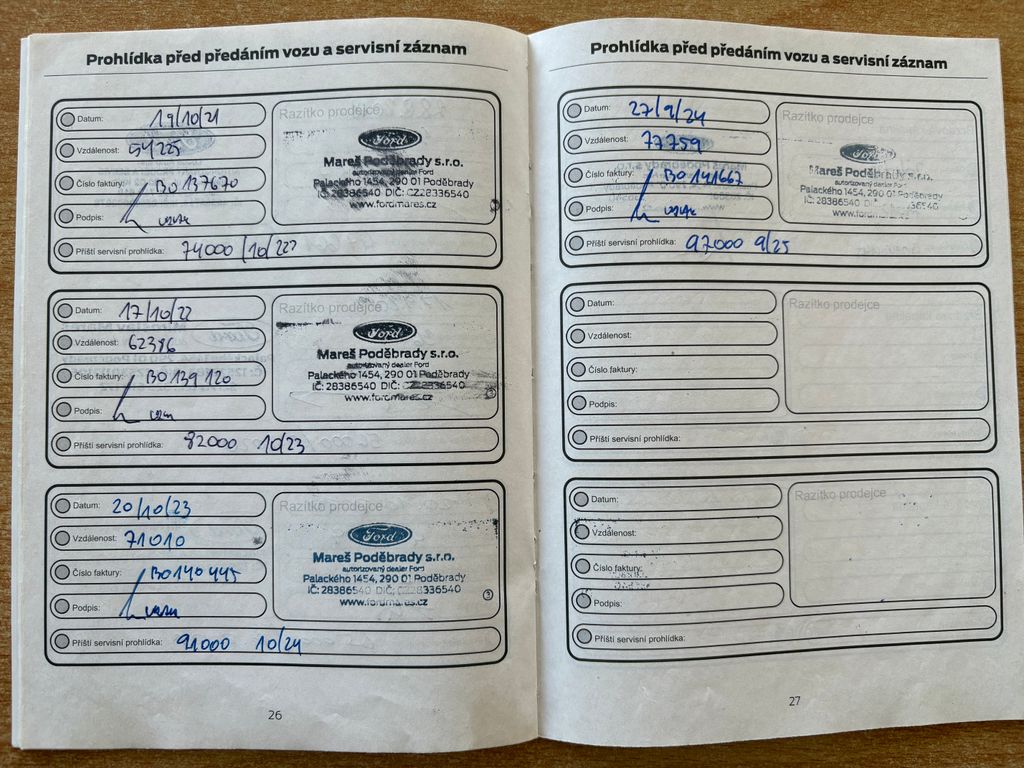 Prohlídka před předáním vozu a servisní záznam
Datum: 19/10/21
Vzdálenost: 54225
Číslo faktury: BO 137670
Podpis:
Příští servisní prohlídka: 74000 /10/22
Razítko prodejce
Ford
Mareš Poděbrady s.r.o.
autorizovaný dealer Ford
Palackého 1454, 290 01 Poděbrady
IČ: 28386540 DIČ: CZ28336540
www.fordmares.cz
Datum: 17/10/22
Vzdálenost: 62386
Číslo faktury: BO 139 120
Podpis:
Příští servisní prohlídka: 82000 10/23
Razítko prodejce
Ford
Mareš Poděbrady s.r.o.
autorizovaný dealer Ford
Palackého 1454, 290 01 Poděbrady
IČ: 28386540 DIČ: CZ28336540
www.fordmares.cz
Datum: 20/10/23
Vzdálenost: 71010
Číslo faktury: BO140445
Podpis:
Příští servisní prohlídka: 91000 10/24
Razítko prodejce
Ford
Mareš Poděbrady s.r.o.
autorizovaný dealer Ford
Palackého 1454, 290 01 Poděbrady
IČ: 28386540 DIČ: CZ28336540
www.fordmares.cz
26
Prohlídka před předáním vozu a servisní záznam
Datum: 27/9/24
Vzdálenost: 77759
Číslo faktury: BO 141667
Podpis:
Příští servisní prohlídka: 97000 9/25
Razítko prodejce
Ford
Mareš Poděbrady s.r.o.
autorizovaný dealer Ford
Palackého 1454, 290 01 Poděbrady
IČ: 28386540 DIČ: 36540
www.fordmares.cz
Datum:
Vzdálenost:
Číslo faktury:
Podpis:
Příští servisní prohlídka:
Razítko prodejce
Datum:
Vzdálenost:
Číslo faktury:
Podpis:
Příští servisní prohlídka:
Razítko prodejce
27